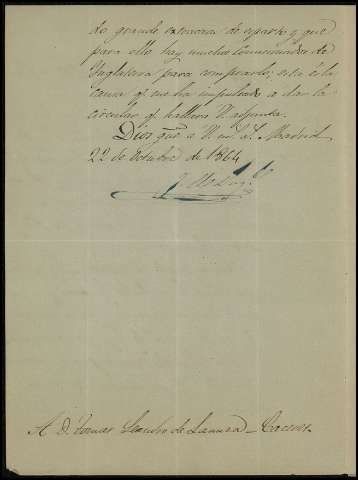 do grande extraccion de esparto y que
para ello hay muchos comisionados de
Inglaterra para comprarlo; esta és la
causa q. me ha impulsado a dar la
circular q. hallará V. adjunta.
Dios gue. a V. m. a. Madrid
22 de Octubre de 1864
A D. Tomas Sancho de Lamura - Caceres